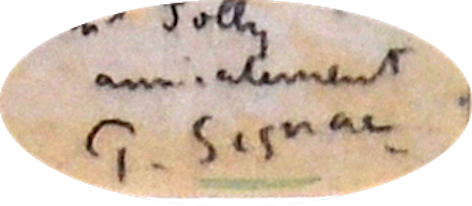 Jolly
amicalement
P. Signac